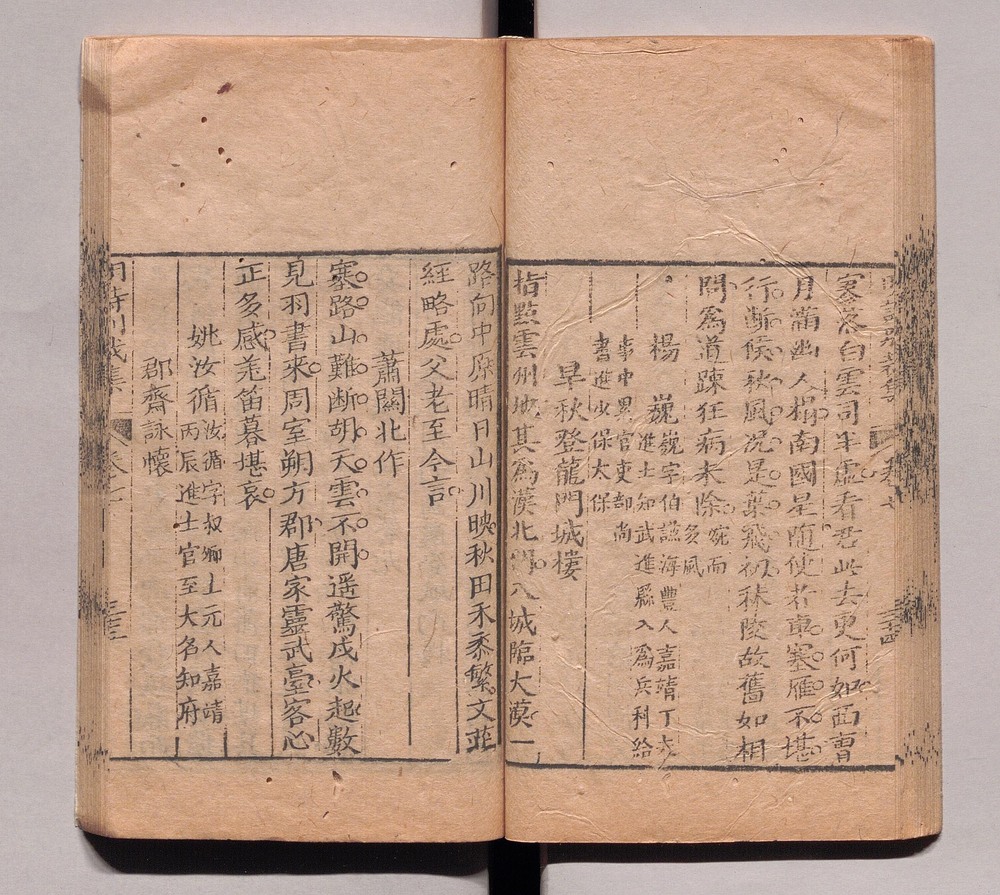 寥落白雲司年虛看君此去更何如西曹
月滿幽人榻南國星随使者車塞雁不堪
行断候秋風况是葉飛初秣陵故舊如相
問為道踈狂病未除
婉而
多風
楊巍
巍字伯謙海豐人嘉靖丁未
進士知武進縣入為兵科給
事中累官吏部尚
書進少保太保
早秋登龍門城樓
指㸃雲州地其為漠北門八城臨大漠一
路向中原晴日山川映秋田禾黍繁文莊
經略處父老至今言
蕭關北作
塞路山難断胡天雲不開遥驚戍火起數
見羽書來周室朔方郡唐家靈武臺客心
正多感羌笛暮堪哀
姚汝循
汝循字叔卿上元人嘉靖
丙辰進士官至大名知府
郡齋詠懷